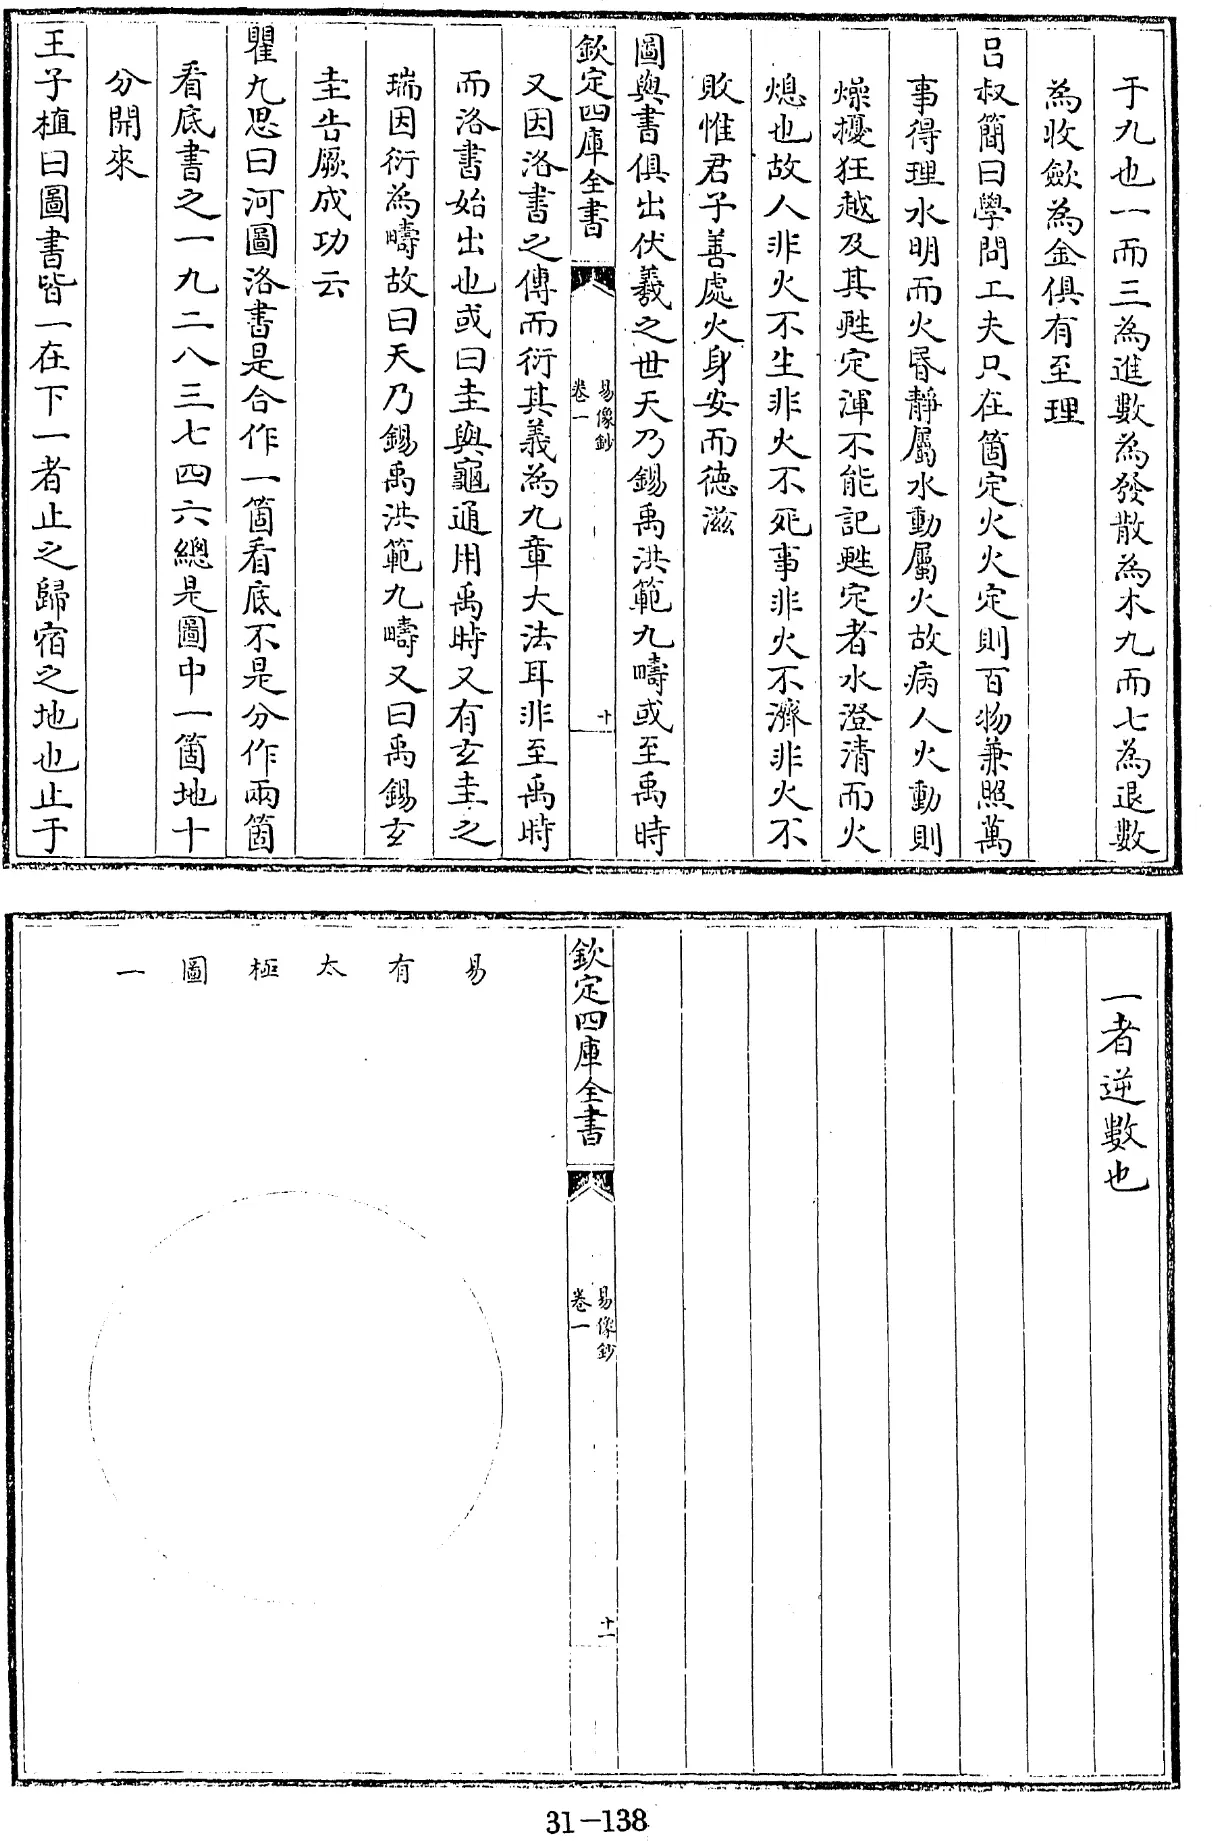 于九也一而三為進數為發散為木九而七為退數
為收斂為金俱有至理
呂叔簡曰學問工夫只在箇定火火定則百物兼照萬
事得理水明而火昬靜屬水動屬火故病人火動則
燥擾狂越及其甦定渾不能記甦定者水澄清而火
熄也故人非火不生非火不死事非火不濟非火不
敗惟君子善處火身安而德滋
圖與書俱出伏羲之世天乃錫禹洪範九疇或至禹時
欽定四庫全書
易像鈔
卷一
十
又因洛書之傳而衍其義為九章大法耳非至禹時
而洛書始出也或曰圭與龜通用禹時又有玄圭之
瑞因衍為疇故曰天乃錫禹洪範九疇又曰禹錫玄
圭告厥成功云
瞿九思曰河圖洛書是合作一箇看底不是分作兩箇
看底書之一九二八三七四六總是圖中一箇地十
分開來
王子植曰圖書皆一在下一者止之歸宿之地也止于
一者逆數也
欽定四庫全書
易像鈔
卷一
十一
易有太極圖一
31-138